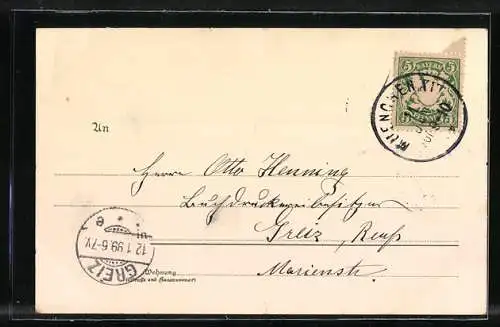 5 BAYERN 5
MUENCHEN XII
An
Herrn Otto Henning
Buchdruckereibesitzer
Greiz, Reuß
Marienstr
GREIZ
12.1.99.6-7V.
Wohnung
(Straße und Hausnummer)